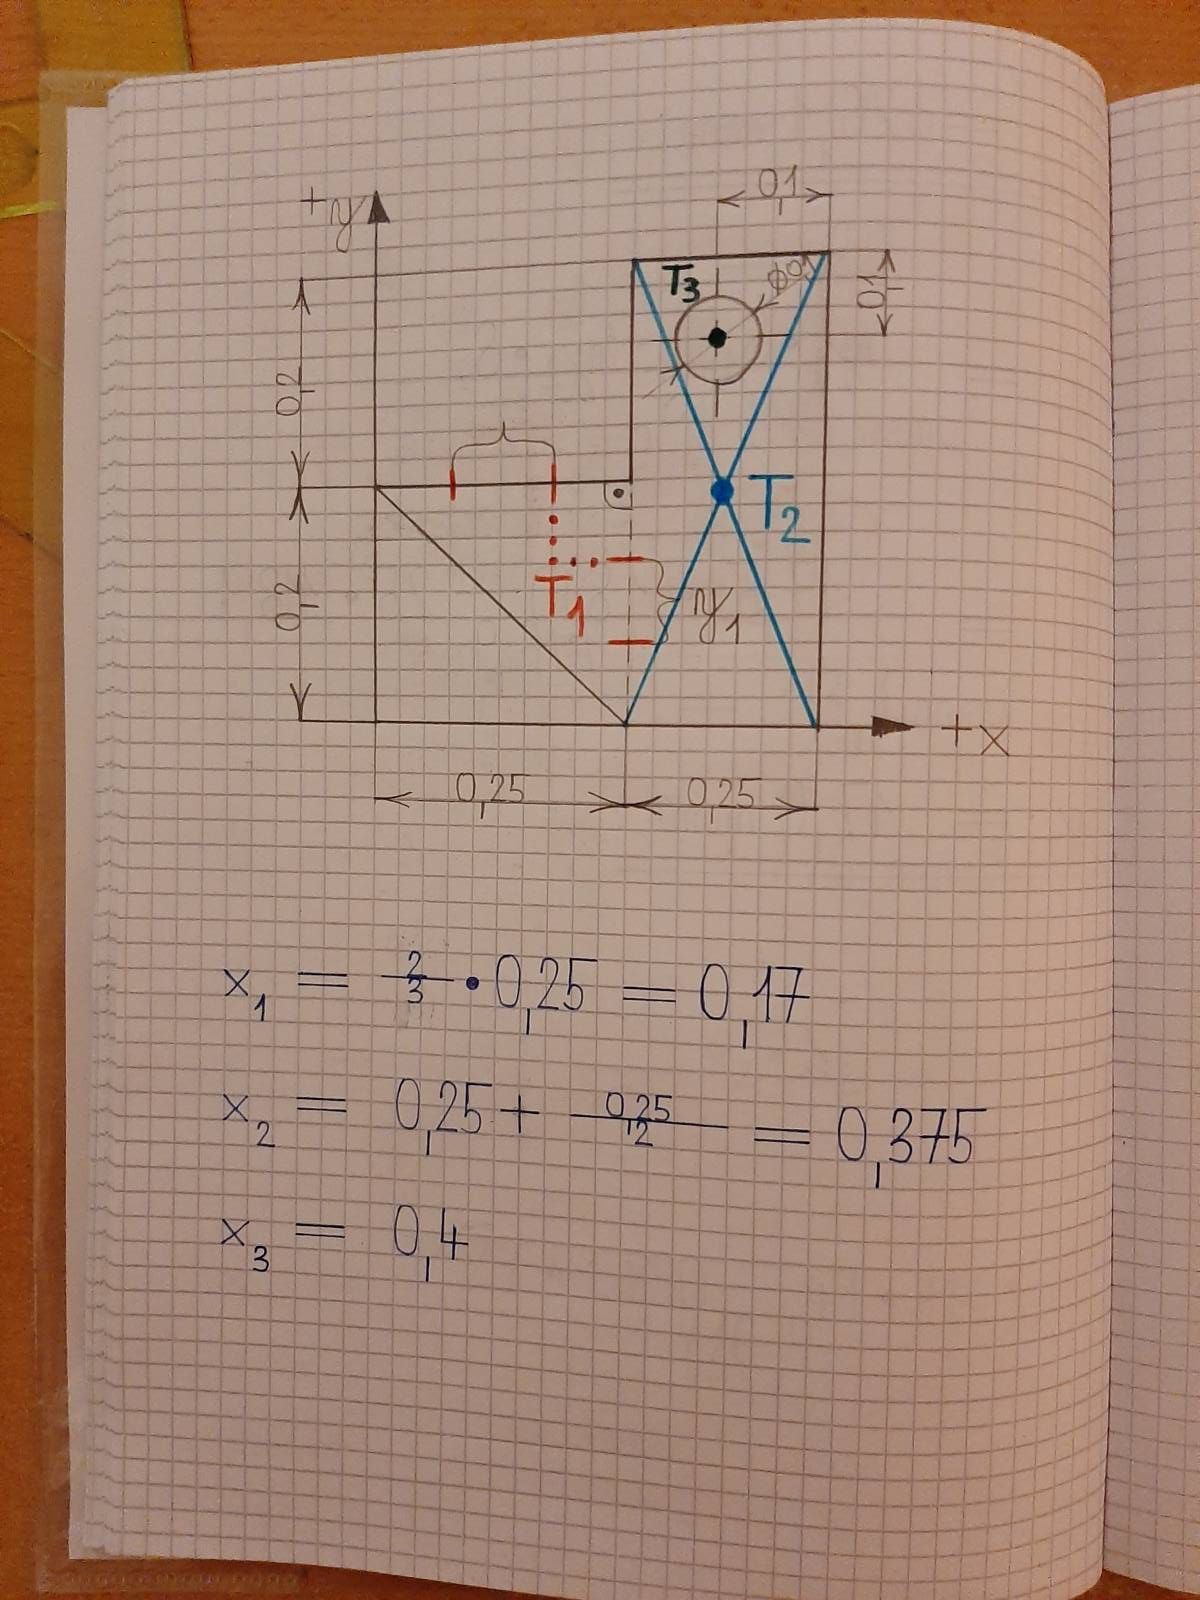 0,1
+y
T3
ϕ0,1
0,1
0,2
T2
T1
y1
0,2
+x
0,25 0,25
x1 = 2/3 • 0,25 = 0,17
x2 = 0,25 + 0,25/2 = 0,375
x3 = 0,4